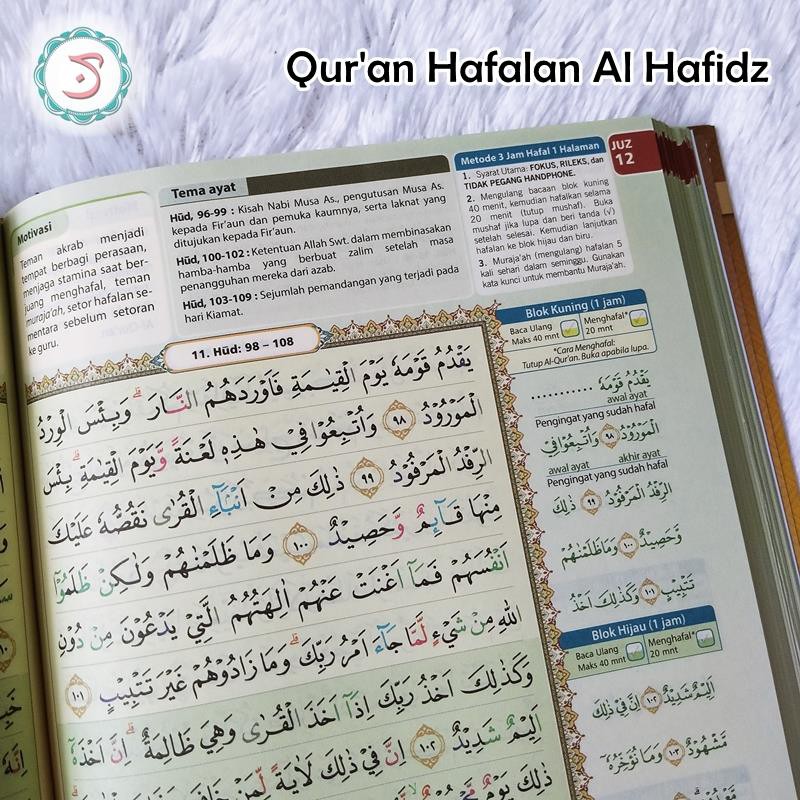 Qur'an Hafalan Al Hafidz
Motivasi
Teman akrab menjadi
tempat berbagi perasaan,
menjaga stamina saat ber-
juang menghafal, teman
muraja'ah, setor hafalan se-
mentara sebelum setoran
ke guru.
Tema ayat
Hūd, 96-99 : Kisah Nabi Musa As., pengutusan Musa As.
kepada Fir'aun dan pemuka kaumnya, serta laknat yang
ditujukan kepada Fir'aun.
Hūd, 100-102 : Ketentuan Allah Swt. dalam membinasakan
hamba-hamba yang berbuat zalim setelah masa
penangguhan mereka dari azab.
Hūd, 103-109 : Sejumlah pemandangan yang terjadi pada
hari Kiamat.
Metode 3 Jam Hafal 1 Halaman
1. Syarat Utama: FOKUS, RILEKS, dan
TIDAK PEGANG HANDPHONE.
2. Mengulang bacaan blok kuning
40 menit, kemudian hafalkan selama
20 menit (tutup mushaf). Buka
mushaf jika lupa dan beri tanda (√)
setelah selesai. Kemudian lanjutkan
hafalan ke blok hijau dan biru.
3. Muraja'ah (mengulang) hafalan 5
kali sehari dalam seminggu. Gunakan
kata kunci untuk membantu Muraja'ah.
JUZ
12
11. Hūd: 98 – 108
يَقْدُمُ قَوْمَهٗ يَوْمَ الْقِيٰمَةِ فَاَوْرَدَهُمُ النَّارَ ۗ وَبِئْسَ الْوِرْدُ
الْمَوْرُوْدُ ٩٨ وَاُتْبِعُوْا فِيْ هٰذِهٖ لَعْنَةً وَّيَوْمَ الْقِيٰمَةِ ۗ بِئْسَ
الرِّفْدُ الْمَرْفُوْدُ ٩٩ ذٰلِكَ مِنْ اَنْۢبَاۤءِ الْقُرٰى نَقُصُّهٗ عَلَيْكَ
مِنْهَا قَاۤىِٕمٌ وَّحَصِيْدٌ ١٠٠ وَمَا ظَلَمْنٰهُمْ وَلٰكِنْ ظَلَمُوْٓا
اَنْفُسَهُمْ فَمَآ اَغْنَتْ عَنْهُمْ اٰلِهَتُهُمُ الَّتِيْ يَدْعُوْنَ مِنْ دُوْنِ
اللّٰهِ مِنْ شَيْءٍ لَّمَّا جَاۤءَ اَمْرُ رَبِّكَ ۗ وَمَا زَادُوْهُمْ غَيْرَ تَتْبِيْبٍ ١٠١
وَكَذٰلِكَ اَخْذُ رَبِّكَ اِذَآ اَخَذَ الْقُرٰى وَهِيَ ظَالِمَةٌ ۗ اِنَّ اَخْذَهٗٓ
اَلِيْمٌ شَدِيْدٌ ١٠٢ اِنَّ فِيْ ذٰلِكَ لَاٰيَةً لِّمَنْ خَافَ
ذٰلِكَ يَوْمٌ
Blok Kuning (1 jam)
Baca Ulang
Maks 40 mnt
Menghafal*
20 mnt
*Cara Menghafal:
Tutup Al-Qur'an. Buka apabila lupa.
يَقْدُمُ قَوْمَهٗ ............
awal ayat
Pengingat yang sudah hafal
الْمَوْرُوْدُ ٩٨ وَاُتْبِعُوْا فِيْ
awal ayat akhir ayat
Pengingat yang sudah hafal
الرِّفْدُ الْمَرْفُوْدُ ٩٩ ذٰلِكَ
وَّحَصِيْدٌ ١٠٠ وَمَا ظَلَمْنٰهُمْ
تَتْبِيْبٍ ١٠١ وَكَذٰلِكَ اَخْذُ
Blok Hijau (1 jam)
Baca Ulang
Maks 40 mnt
Menghafal*
20 mnt
اَلِيْمٌ شَدِيْدٌ ١٠٢ اِنَّ فِيْ ذٰلِكَ
مَّشْهُوْدٌ ١٠٣ وَمَا نُؤَخِّرُهٗٓ